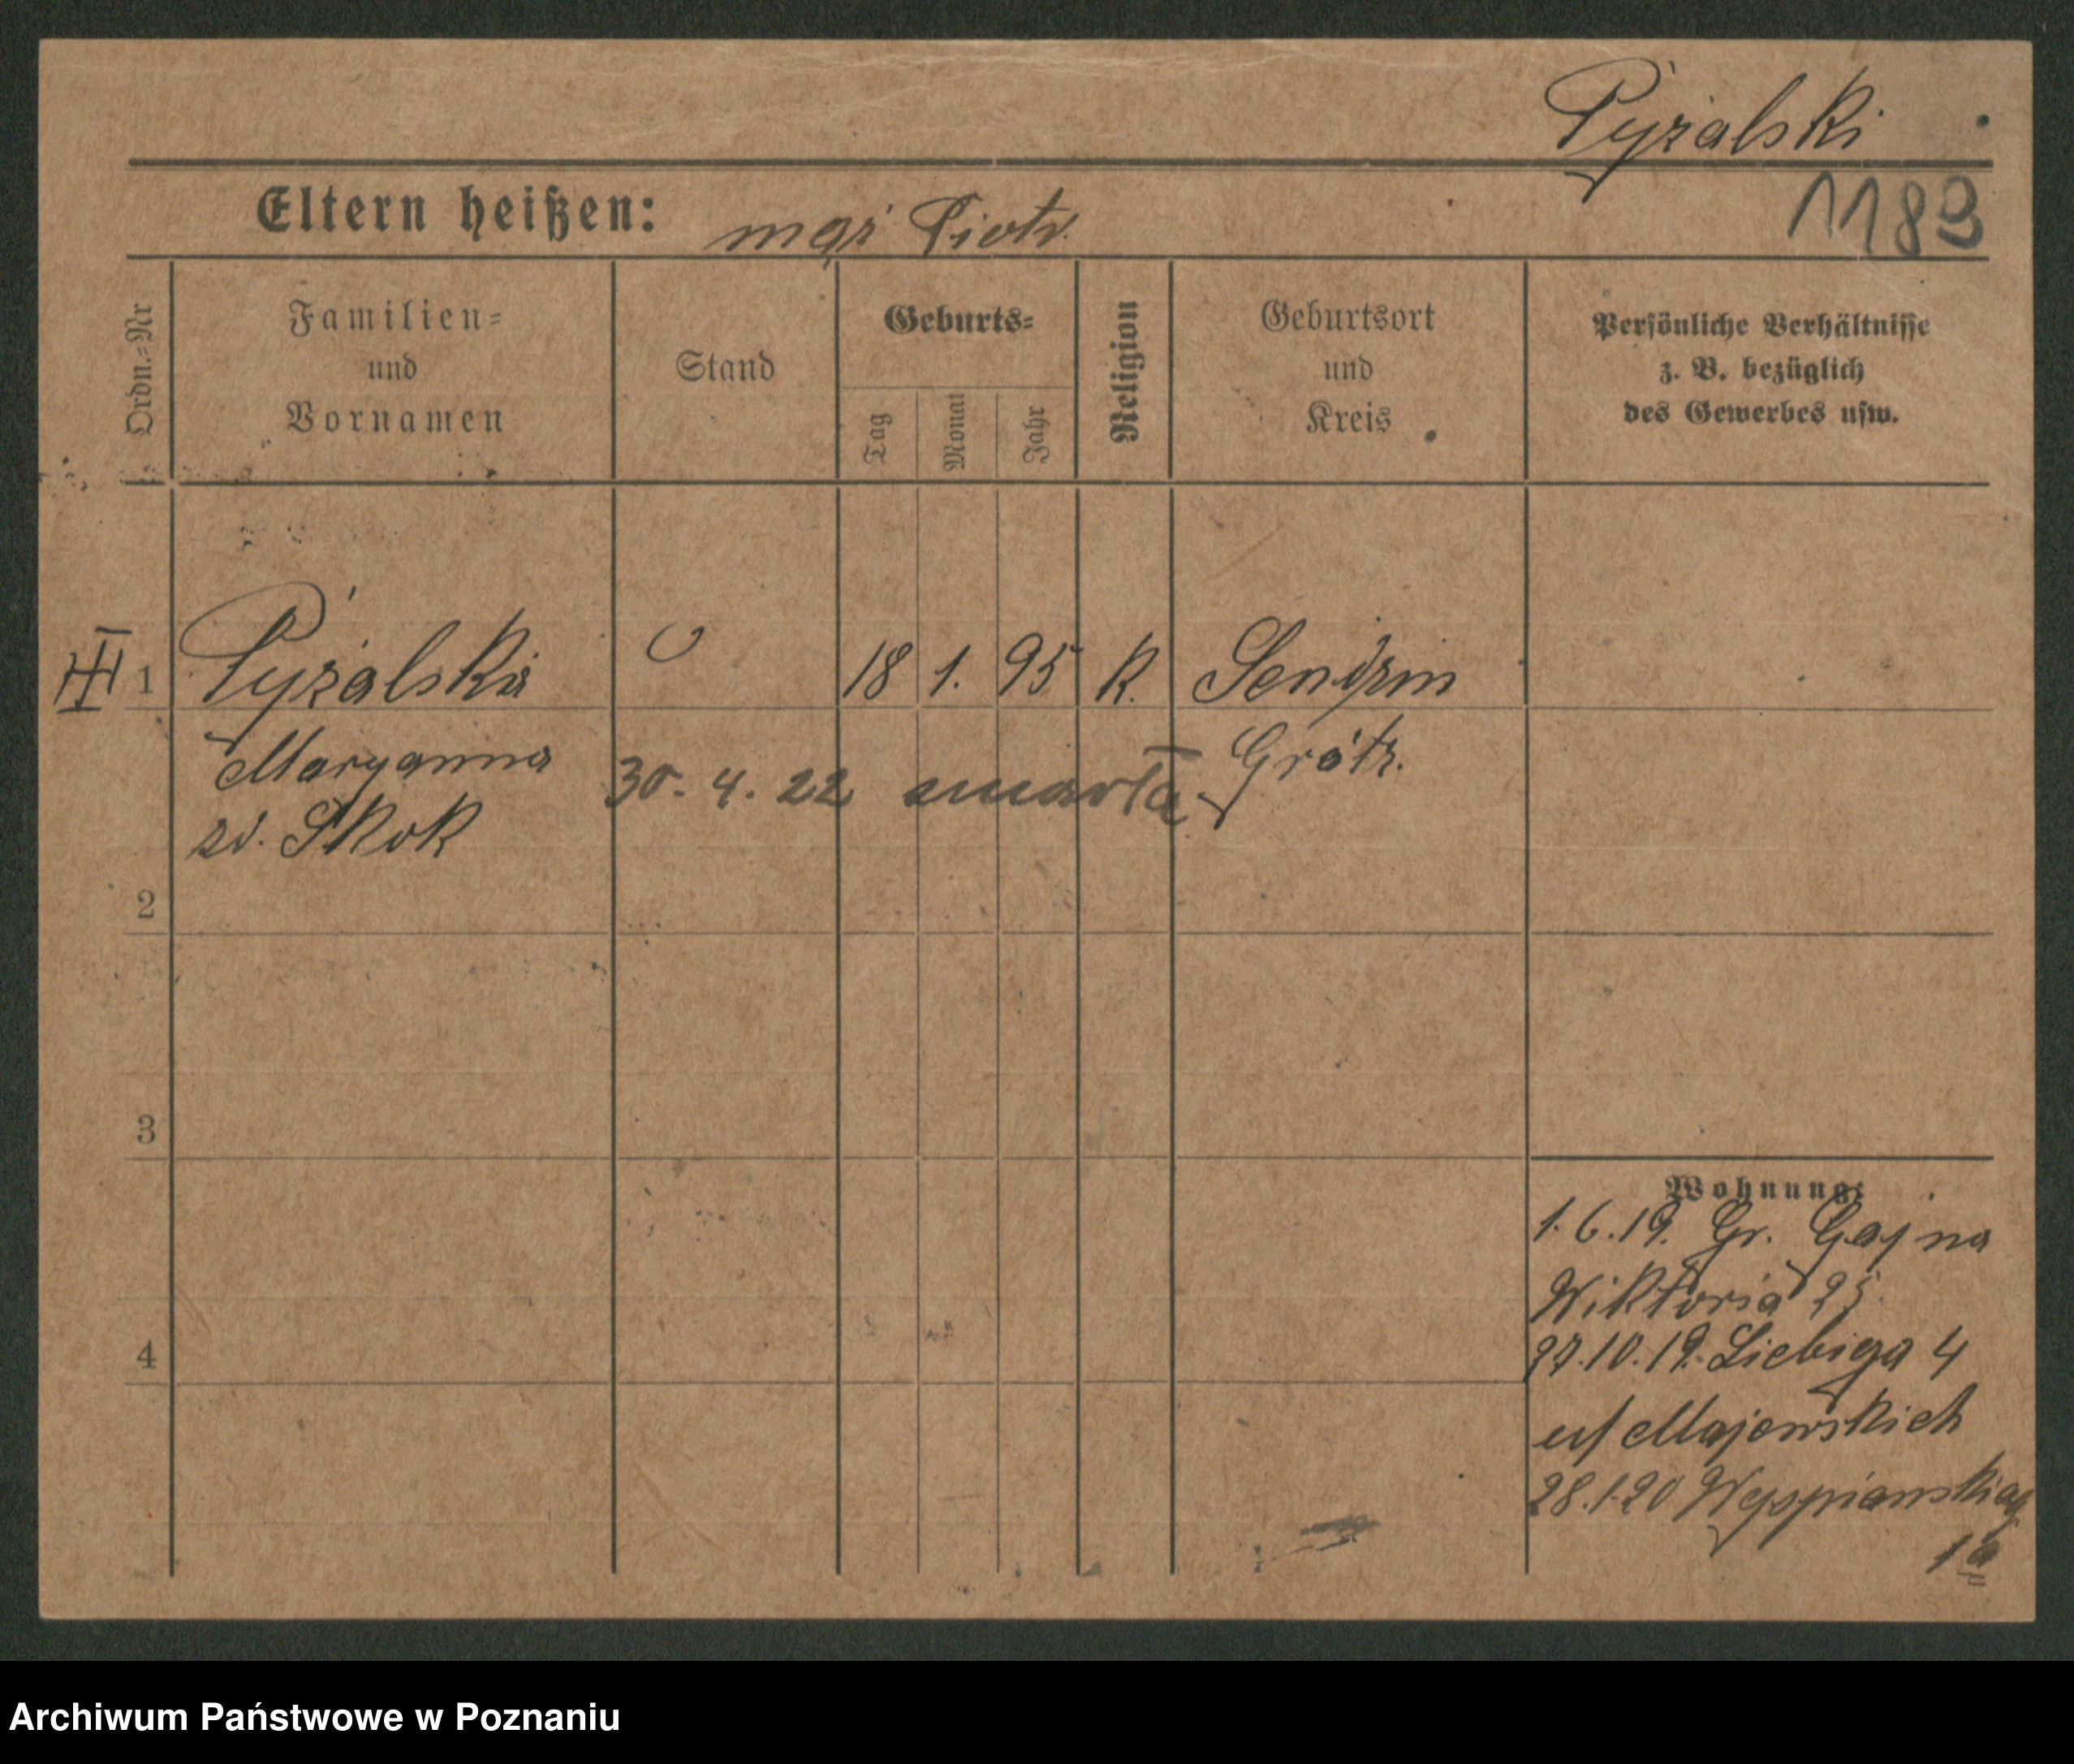 Pyżalski
Eltern heißen: mąż Piotr.
1183
Ordn.-Nr
Familien-
und
Vornamen
Stand
Geburts-
Tag
Monat
Jahr
Religion
Geburtsort
und
Kreis
Persönliche Verhältnisse
z. B. bezüglich
des Gewerbes usw.
III 1 Pyżalska 18 1. 95 K. Sendzin
Maryanna Grätz.
30. 4. 22 zmarła
zd. Skok
2
3
Wohnung:
1.6.19. Gr. Gajna
Wiktoria 25.
4
27.10.19. Liebiga 4
u/ Majewskich
28.1.20 Wyspianskiag
1a